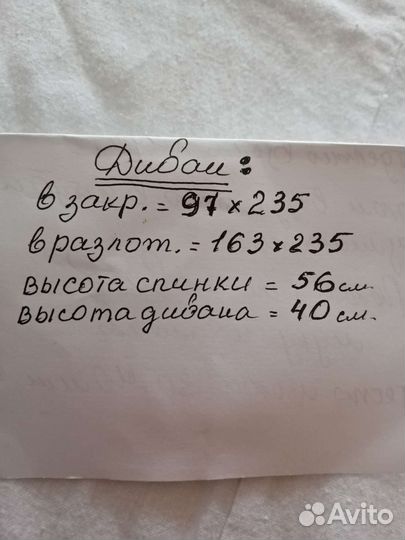 Диван:
в закр. = 97 × 235
в разлож. = 163 × 235
высота спинки = 56 см.
высота дивана = 40 см.
Avito